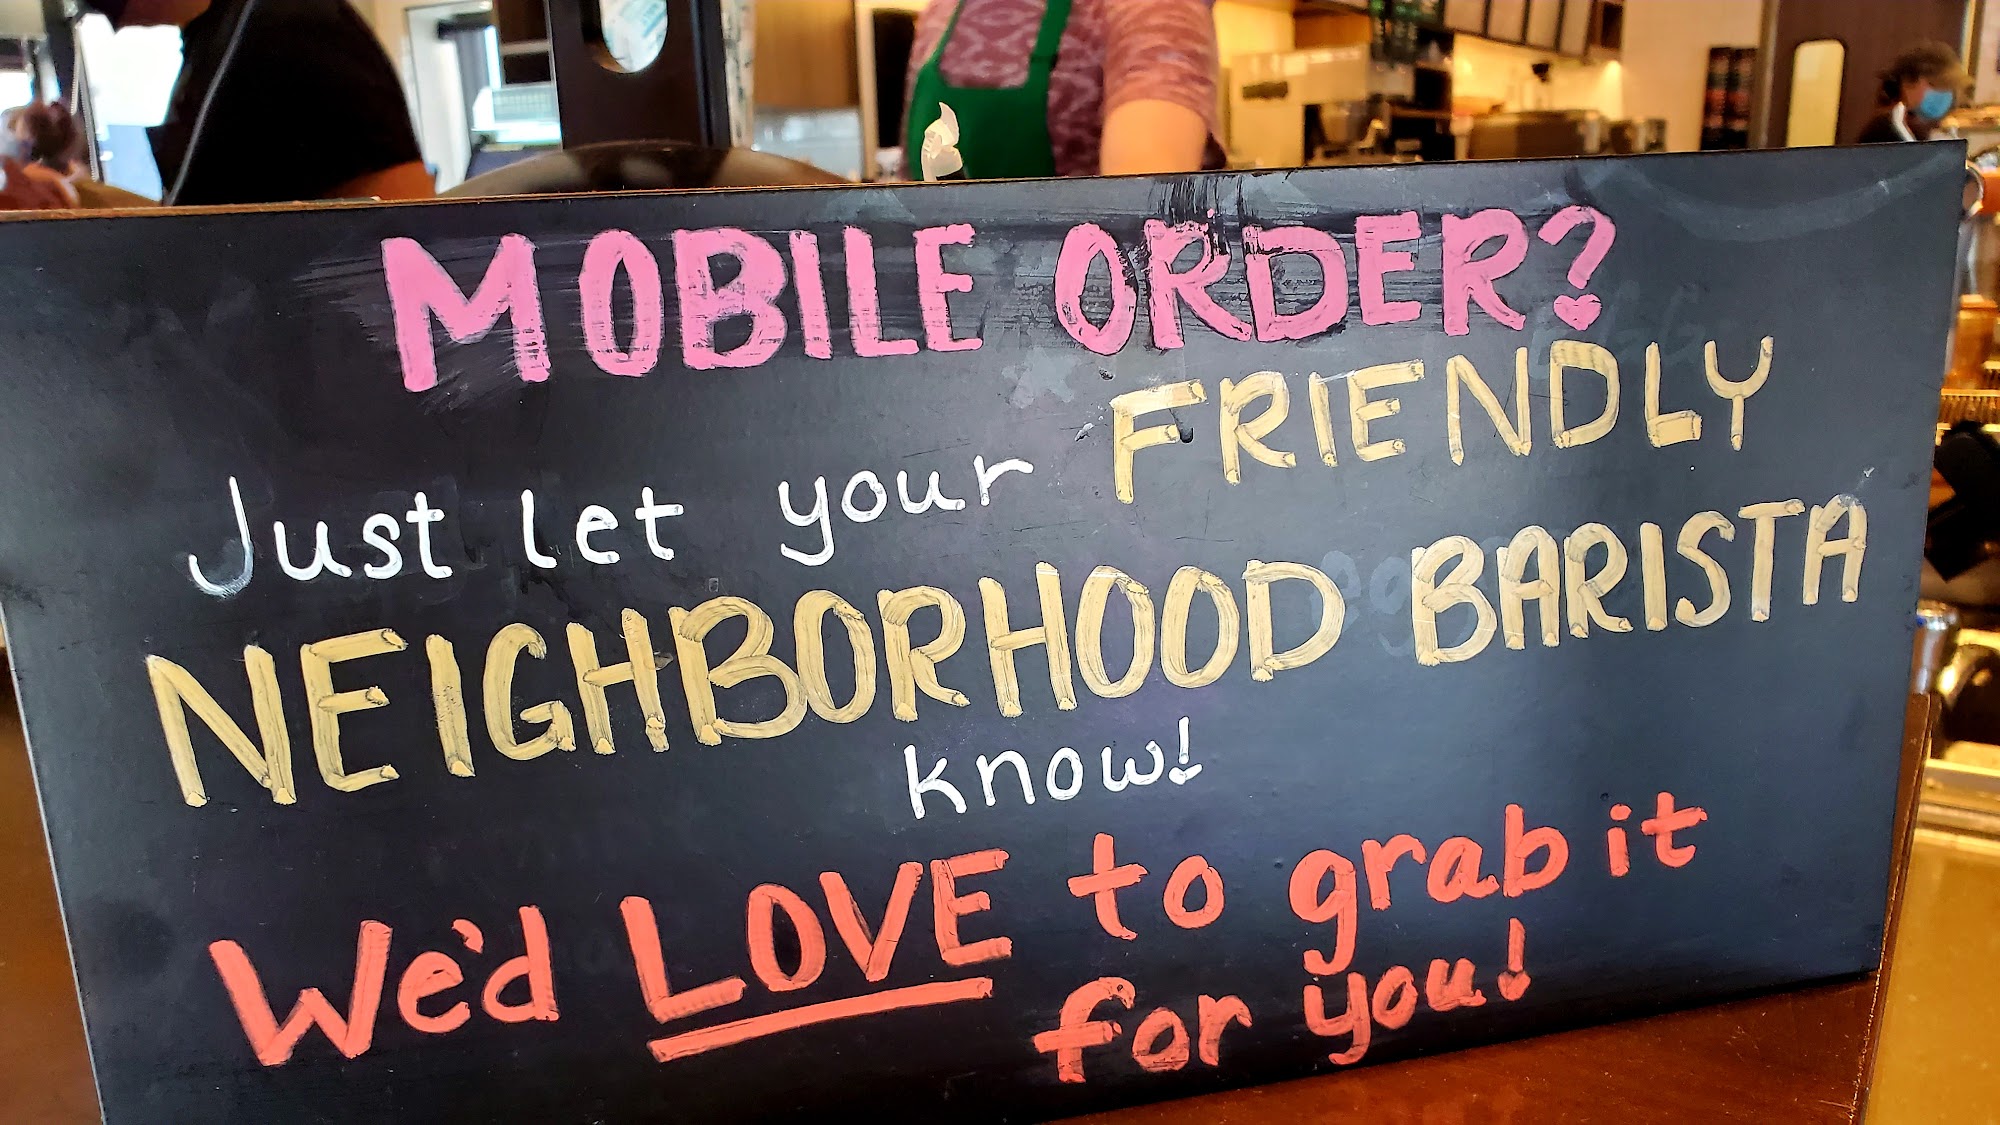 MOBILE ORDER?
Just let your FRIENDLY
NEIGHBORHOOD BARISTA
know!
We'd LOVE to grab it
for you!